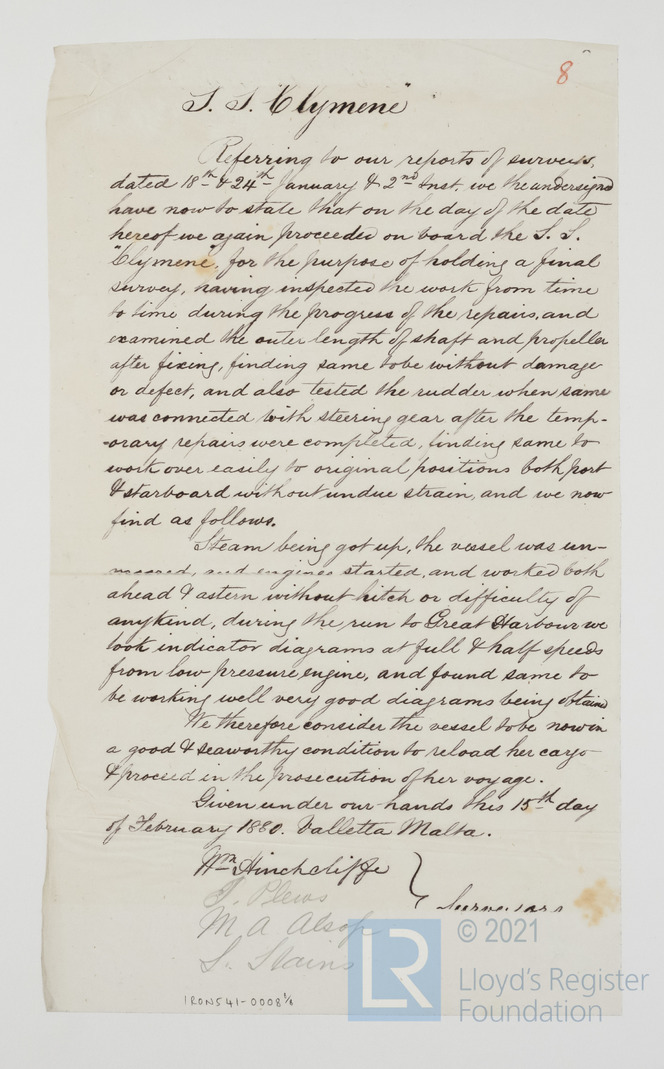 8
S. S. "Clymene"
Referring to our reports of surveys,
dated 18th & 24th January & 2nd Inst. we the undersigned
have now to state that on the day of the date
hereof we again proceeded on board the S. S.
"Clymene", for the purpose of holding a final
survey, having inspected the work from time
to time during the progress of the repairs, and
examined the outer length of shaft and propeller
after fixing, finding same to be without damage
or defect, and also tested the rudder when same
was connected with steering gear after the temp-
-orary repairs were completed, finding same to
work over easily to original positions both port
& starboard without undue strain, and we now
find as follows.
Steam being got up, the vessel was un-
moored, and engines started, and worked both
ahead & astern without hitch or difficulty of
any kind, during the run to Great Harbour we
took indicator diagrams at full & half speeds
from low pressure engine, and found same to
be working well very good diagrams being obtained
We therefore consider the vessel to be now in
a good & seaworthy condition to reload her cargo
& proceed in the prosecution of her voyage.
Given under our hands this 15th day
of February 1880. Valletta Malta.
Wm Hinchcliffe
J. Plews
M A Alsop
S. Stains
Surveyors
IRON541-0008 1/2
LR
© 2021
Lloyd's Register
Foundation